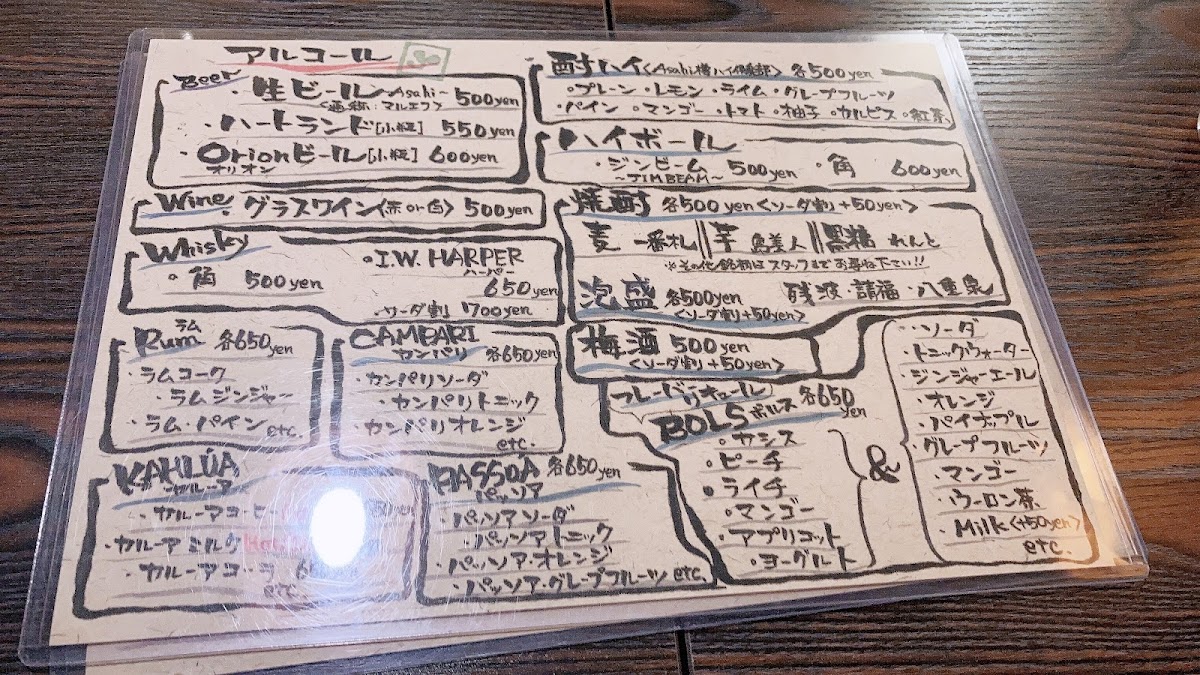 アルコール
Beer
・生ビール Asahi〜 500yen
<通称:マルエフ>
・ハートランド[小瓶] 550yen
・Orionビール[小瓶] 600yen
オリオン
Wine・グラスワイン<赤or白> 500yen
Whisky
・角 500yen
・I.W. HARPER
ハーパー
650yen
・ソーダ割 700yen
ラム
Rum 各650yen
・ラムコーク
・ラムジンジャー
・ラム・パイン etc.
CAMPARI
カンパリ 各650yen
・カンパリソーダ
・カンパリトニック
・カンパリオレンジ
etc.
KAHLÚA
カルーア
・カルーアコーヒー
・カルーアミルク
・カルーアコーラ
etc.
PASSOÃ 各650yen
パッソア
・パッソアソーダ
・パッソアトニック
・パッソア・オレンジ
・パッソア・グレープフルーツ etc.
酎ハイ<Asahi樽ハイ倶楽部> 各500yen
・プレーン・レモン・ライム・グレープフルーツ
・パイン・マンゴー・トマト・柚子・カルピス・紅茶
ハイボール
・ジンビーム 500yen ・角 600yen
〜JIM BEAM〜
焼酎 各500yen<ソーダ割+50yen>
麦 一番札 || 芋 魚美人 || 黒糖 れんと
※その他銘柄はスタッフまでお尋ね下さい!!
泡盛 各500yen 残波・請福・八重泉
<ソーダ割+50yen>
梅酒 500yen
<ソーダ割+50yen>
フレーバーリキュール
BOLS ボルス 各650yen
・カシス
・ピーチ
・ライチ
・マンゴー
・アプリコット
・ヨーグルト
&
・ソーダ
・トニックウォーター
・ジンジャーエール
・オレンジ
・パイナップル
・グレープフルーツ
・マンゴー
・ウーロン茶
・Milk<+50yen>
etc.